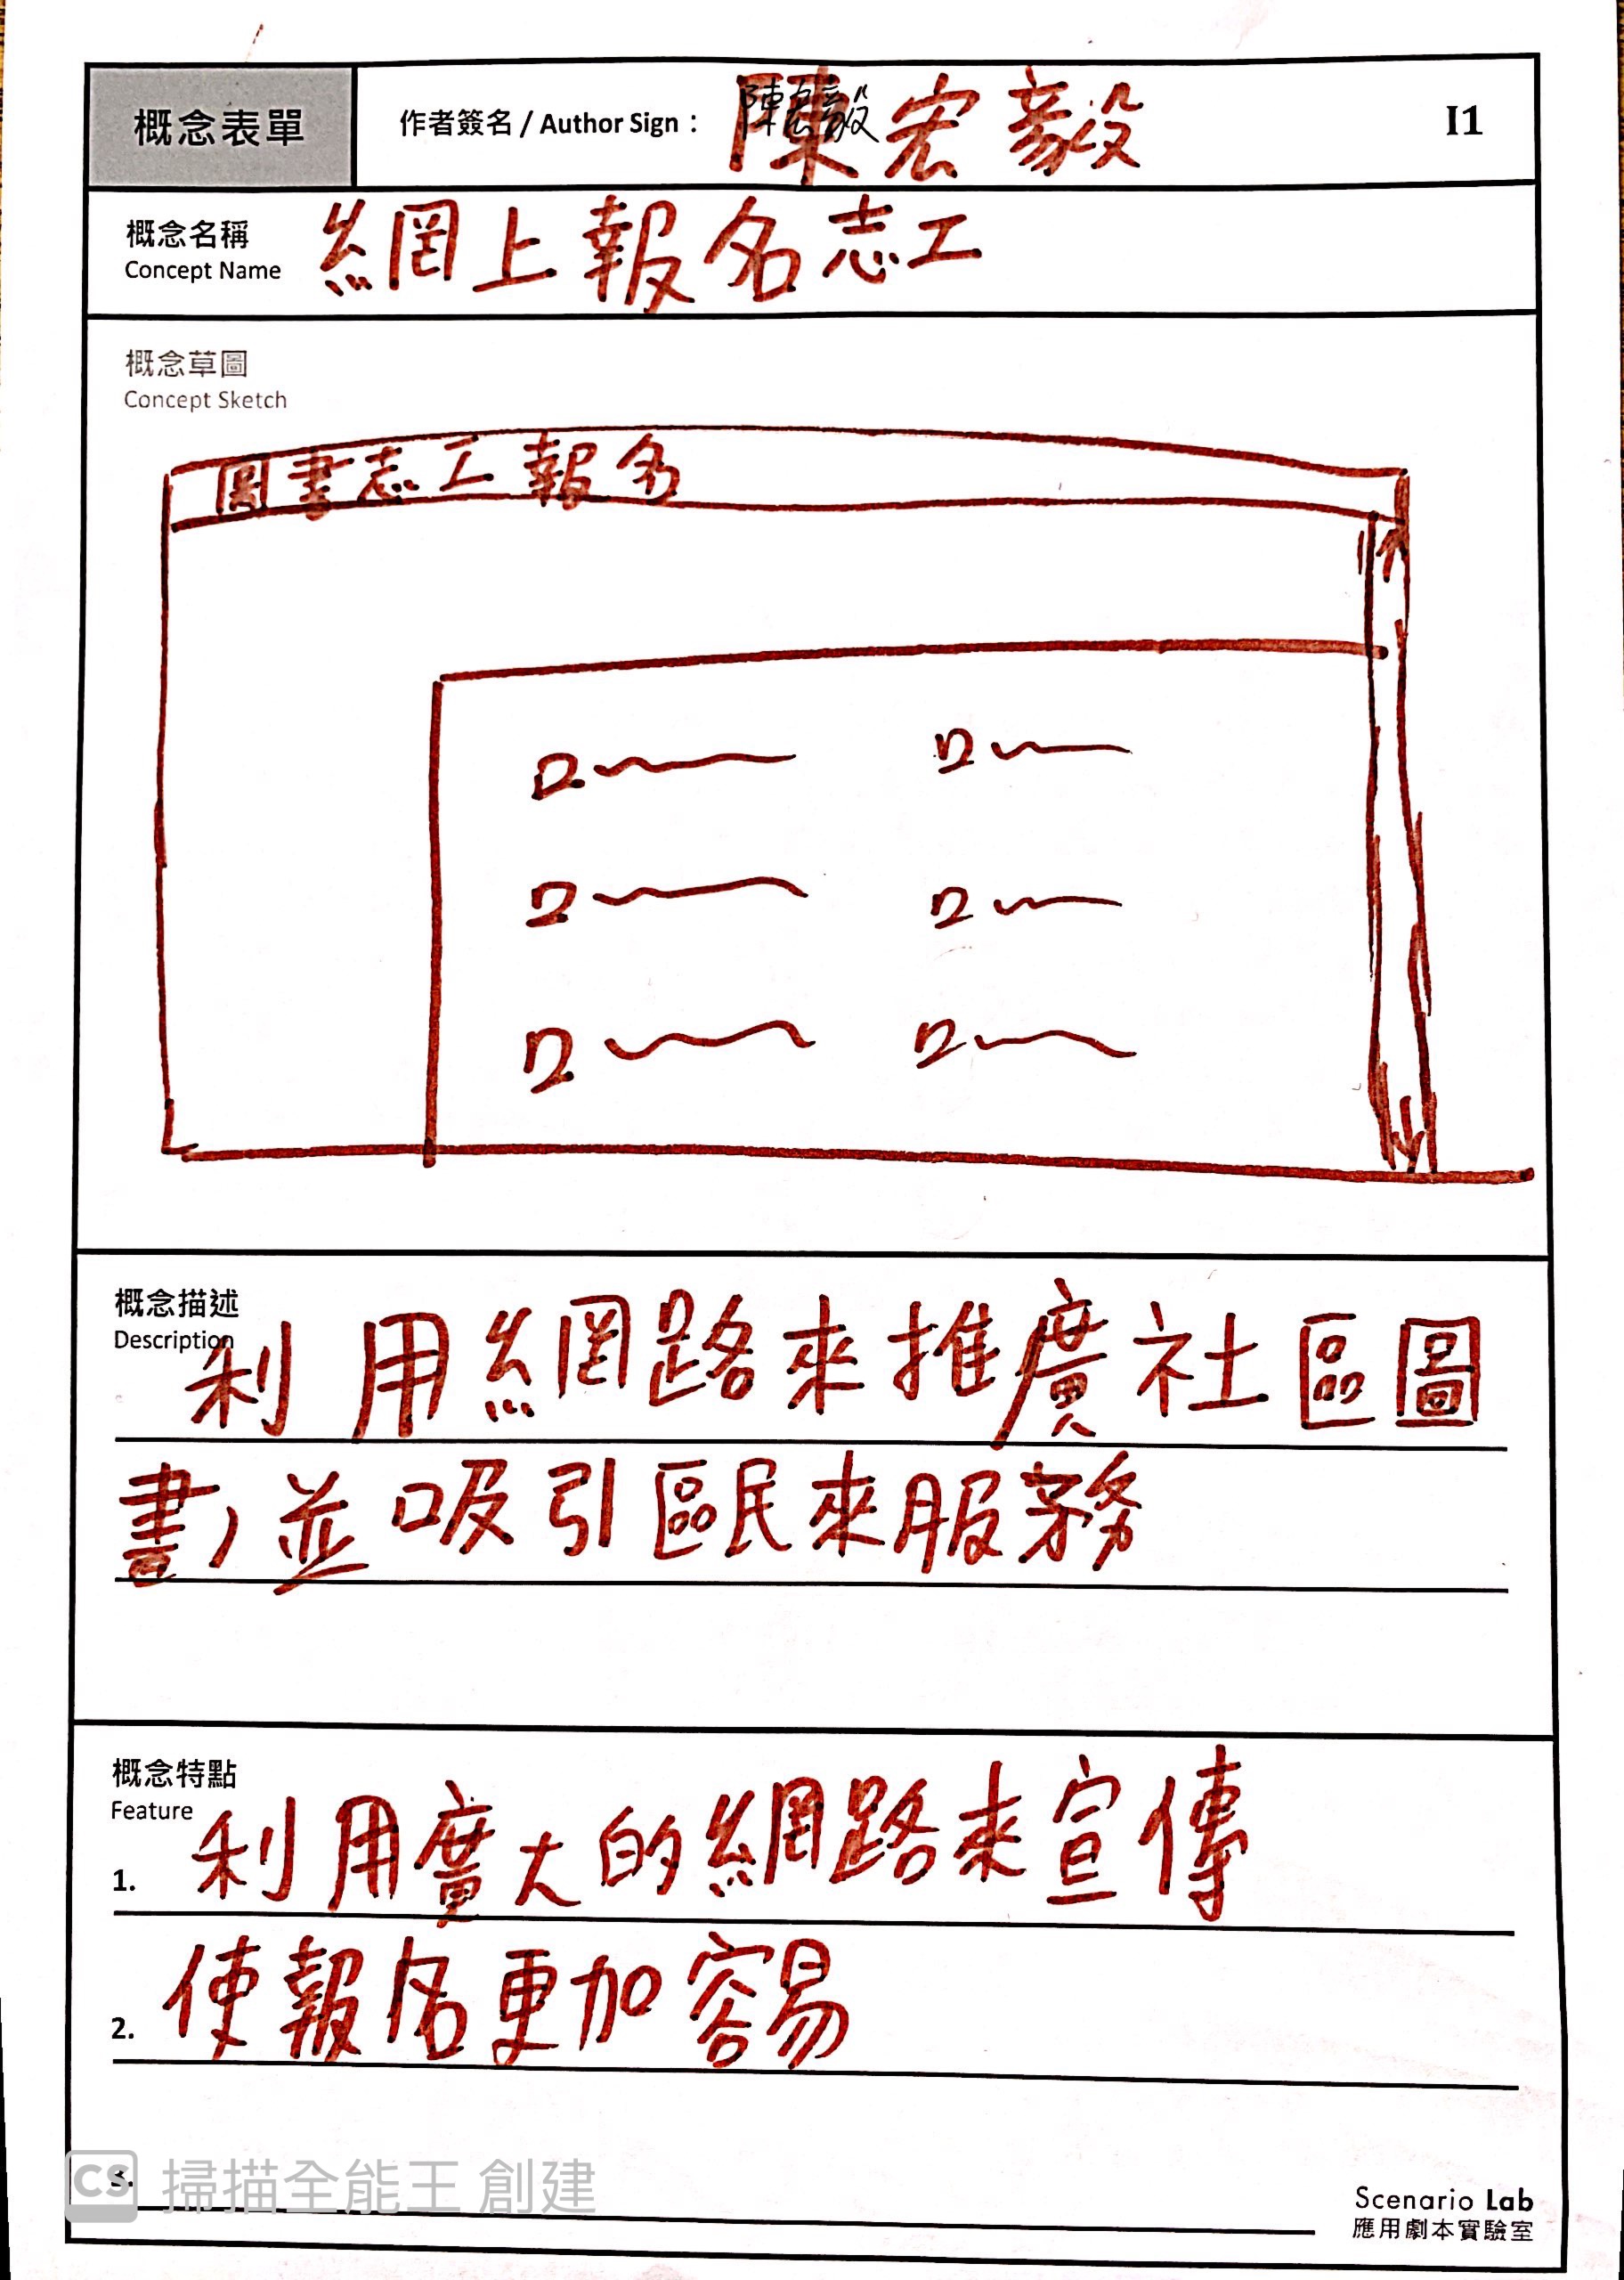 概念表單
作者簽名 / Author Sign：
陳宏毅
陳宏毅
I1
概念名稱
Concept Name
網上報名志工
概念草圖
Concept Sketch
圖書志工報名
概念描述
Description
利用網路來推廣社區圖
書，並吸引區民來服務
概念特點
Feature
1. 利用廣大的網路來宣傳
2. 使報名更加容易
3.
CS 掃描全能王 創建
Scenario Lab
應用劇本實驗室